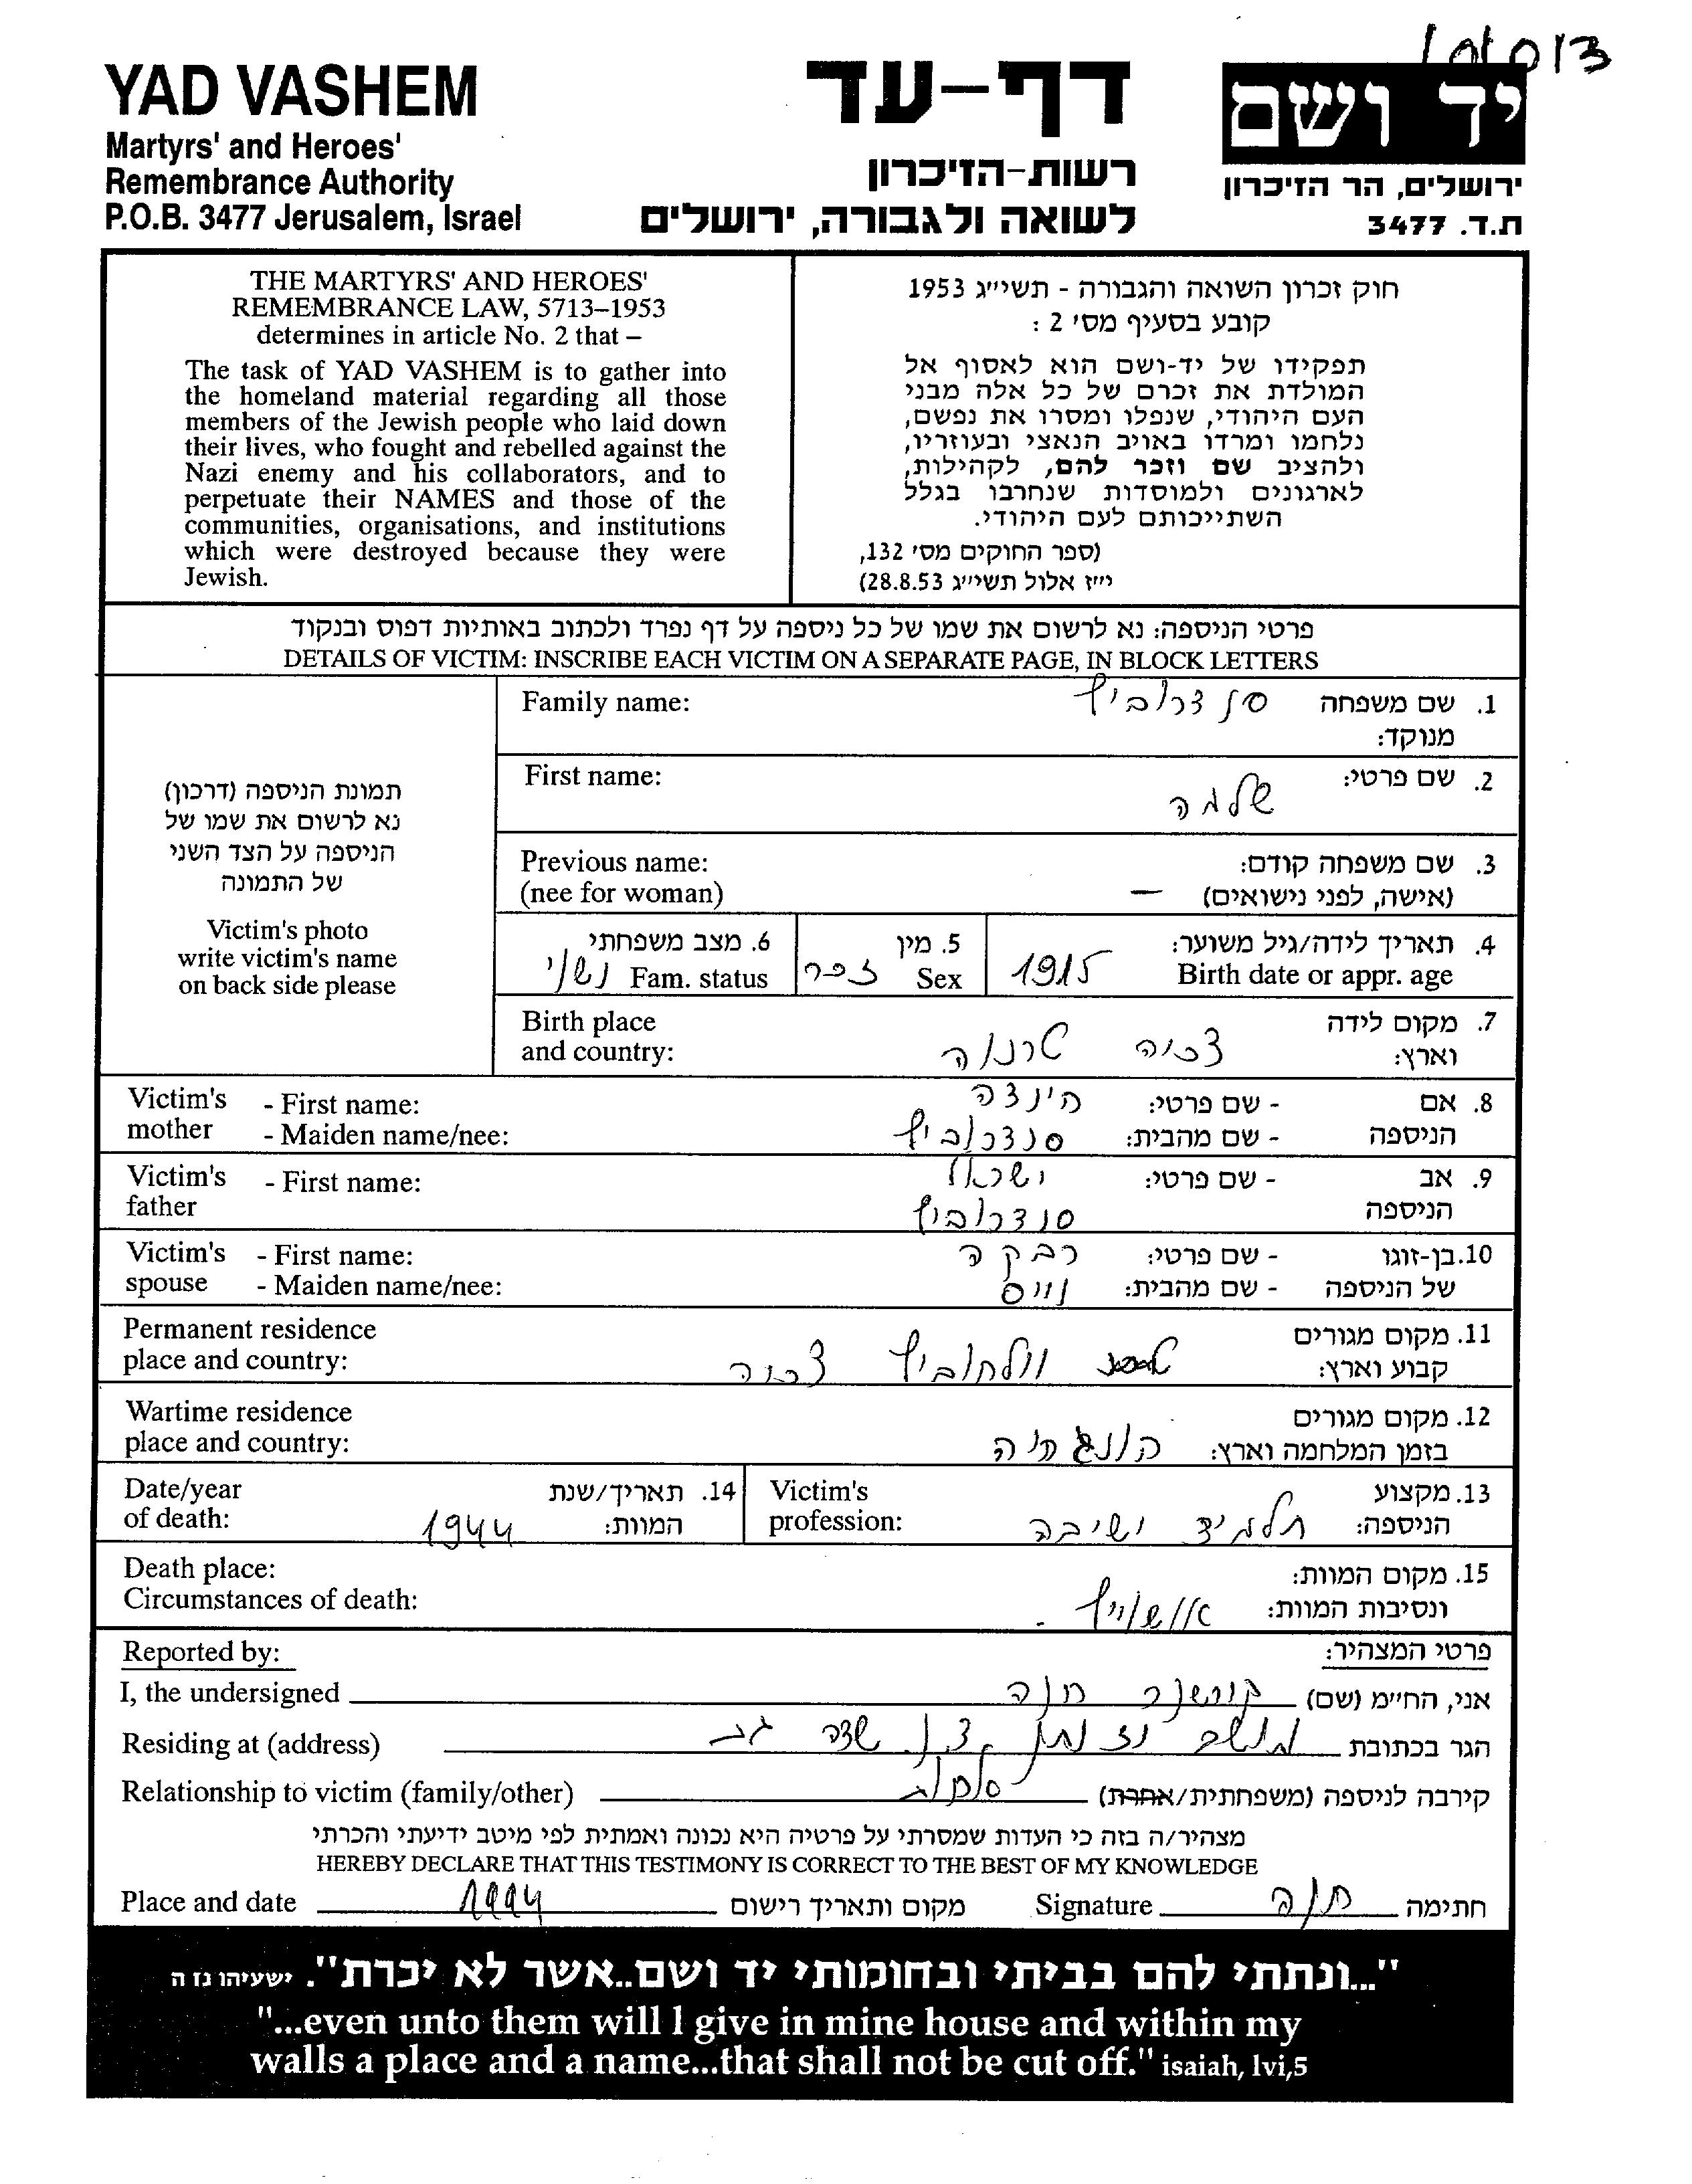 101013
YAD VASHEM
Martyrs' and Heroes'
Remembrance Authority
P.O.B. 3477 Jerusalem, Israel
דף-עד
רשות-הזיכרון
לשואה ולגבורה, ירושלים
יד ושם
ירושלים, הר הזיכרון
ת.ד. 3477
THE MARTYRS' AND HEROES'
REMEMBRANCE LAW, 5713–1953
determines in article No. 2 that –
The task of YAD VASHEM is to gather into
the homeland material regarding all those
members of the Jewish people who laid down
their lives, who fought and rebelled against the
Nazi enemy and his collaborators, and to
perpetuate their NAMES and those of the
communities, organisations, and institutions
which were destroyed because they were
Jewish.
חוק זכרון השואה והגבורה - תשי״ג 1953
קובע בסעיף מס׳ 2 :
תפקידו של יד-ושם הוא לאסוף אל
המולדת את זכרם של כל אלה מבני
העם היהודי, שנפלו ומסרו את נפשם,
נלחמו ומרדו באויב הנאצי ובעוזריו,
ולהציב שם וזכר להם, לקהילות,
לארגונים ולמוסדות שנחרבו בגלל
השתייכותם לעם היהודי.
(ספר החוקים מס׳ 132,
י״ז אלול תשי״ג 28.8.53)
פרטי הניספה: נא לרשום את שמו של כל ניספה על דף נפרד ולכתוב באותיות דפוס ובנקוד
DETAILS OF VICTIM: INSCRIBE EACH VICTIM ON A SEPARATE PAGE, IN BLOCK LETTERS
תמונת הניספה (דרכון)
נא לרשום את שמו של
הניספה על הצד השני
של התמונה
Victim's photo
write victim's name
on back side please
1. שם משפחה סנדרוביץ Family name:
מנוקד:
2. שם פרטי: שלמה First name:
3. שם משפחה קודם: Previous name:
(אישה, לפני נישואים) — (nee for woman)
4. תאריך לידה/גיל משוער: 5. מין 6. מצב משפחתי
Birth date or appr. age 1915 Sex זכר Fam. status נשוי
7. מקום לידה Birth place
וארץ: צכיה טרנוה and country:
8. אם - שם פרטי: הינדה Victim's - First name:
הניספה - שם מהבית: סנדרוביץ mother - Maiden name/nee:
9. אב - שם פרטי: ישראל Victim's - First name:
הניספה סנדרוביץ father
10. בן-זוגו - שם פרטי: רבקה Victim's - First name:
של הניספה - שם מהבית: ווייס spouse - Maiden name/nee:
11. מקום מגורים Permanent residence
קבוע וארץ: וולחוביץ צכיה place and country:
12. מקום מגורים Wartime residence
בזמן המלחמה וארץ: הונגריה place and country:
13. מקצוע Victim's 14. תאריך/שנת Date/year
הניספה: תלמיד ישיבה profession: המוות: 1944 of death:
15. מקום המוות: Death place:
ונסיבות המוות: אוושוויץ. Circumstances of death:
פרטי המצהיר: Reported by:
אני, הח״מ (שם) חוה I, the undersigned
הגר בכתובת מושב שדה Residing at (address)
קירבה לניספה (משפחתית/אחרת) Relationship to victim (family/other)
מצהיר/ה בזה כי העדות שמסרתי על פרטיה היא נכונה ואמתית לפי מיטב ידיעתי והכרתי
HEREBY DECLARE THAT THIS TESTIMONY IS CORRECT TO THE BEST OF MY KNOWLEDGE
Place and date 1994 מקום ותאריך רישום Signature חוה חתימה
"...ונתתי להם בביתי ובחומותי יד ושם..אשר לא יכרת". ישעיהו נז ה
"...even unto them will I give in mine house and within my
walls a place and a name...that shall not be cut off." isaiah, lvi,5